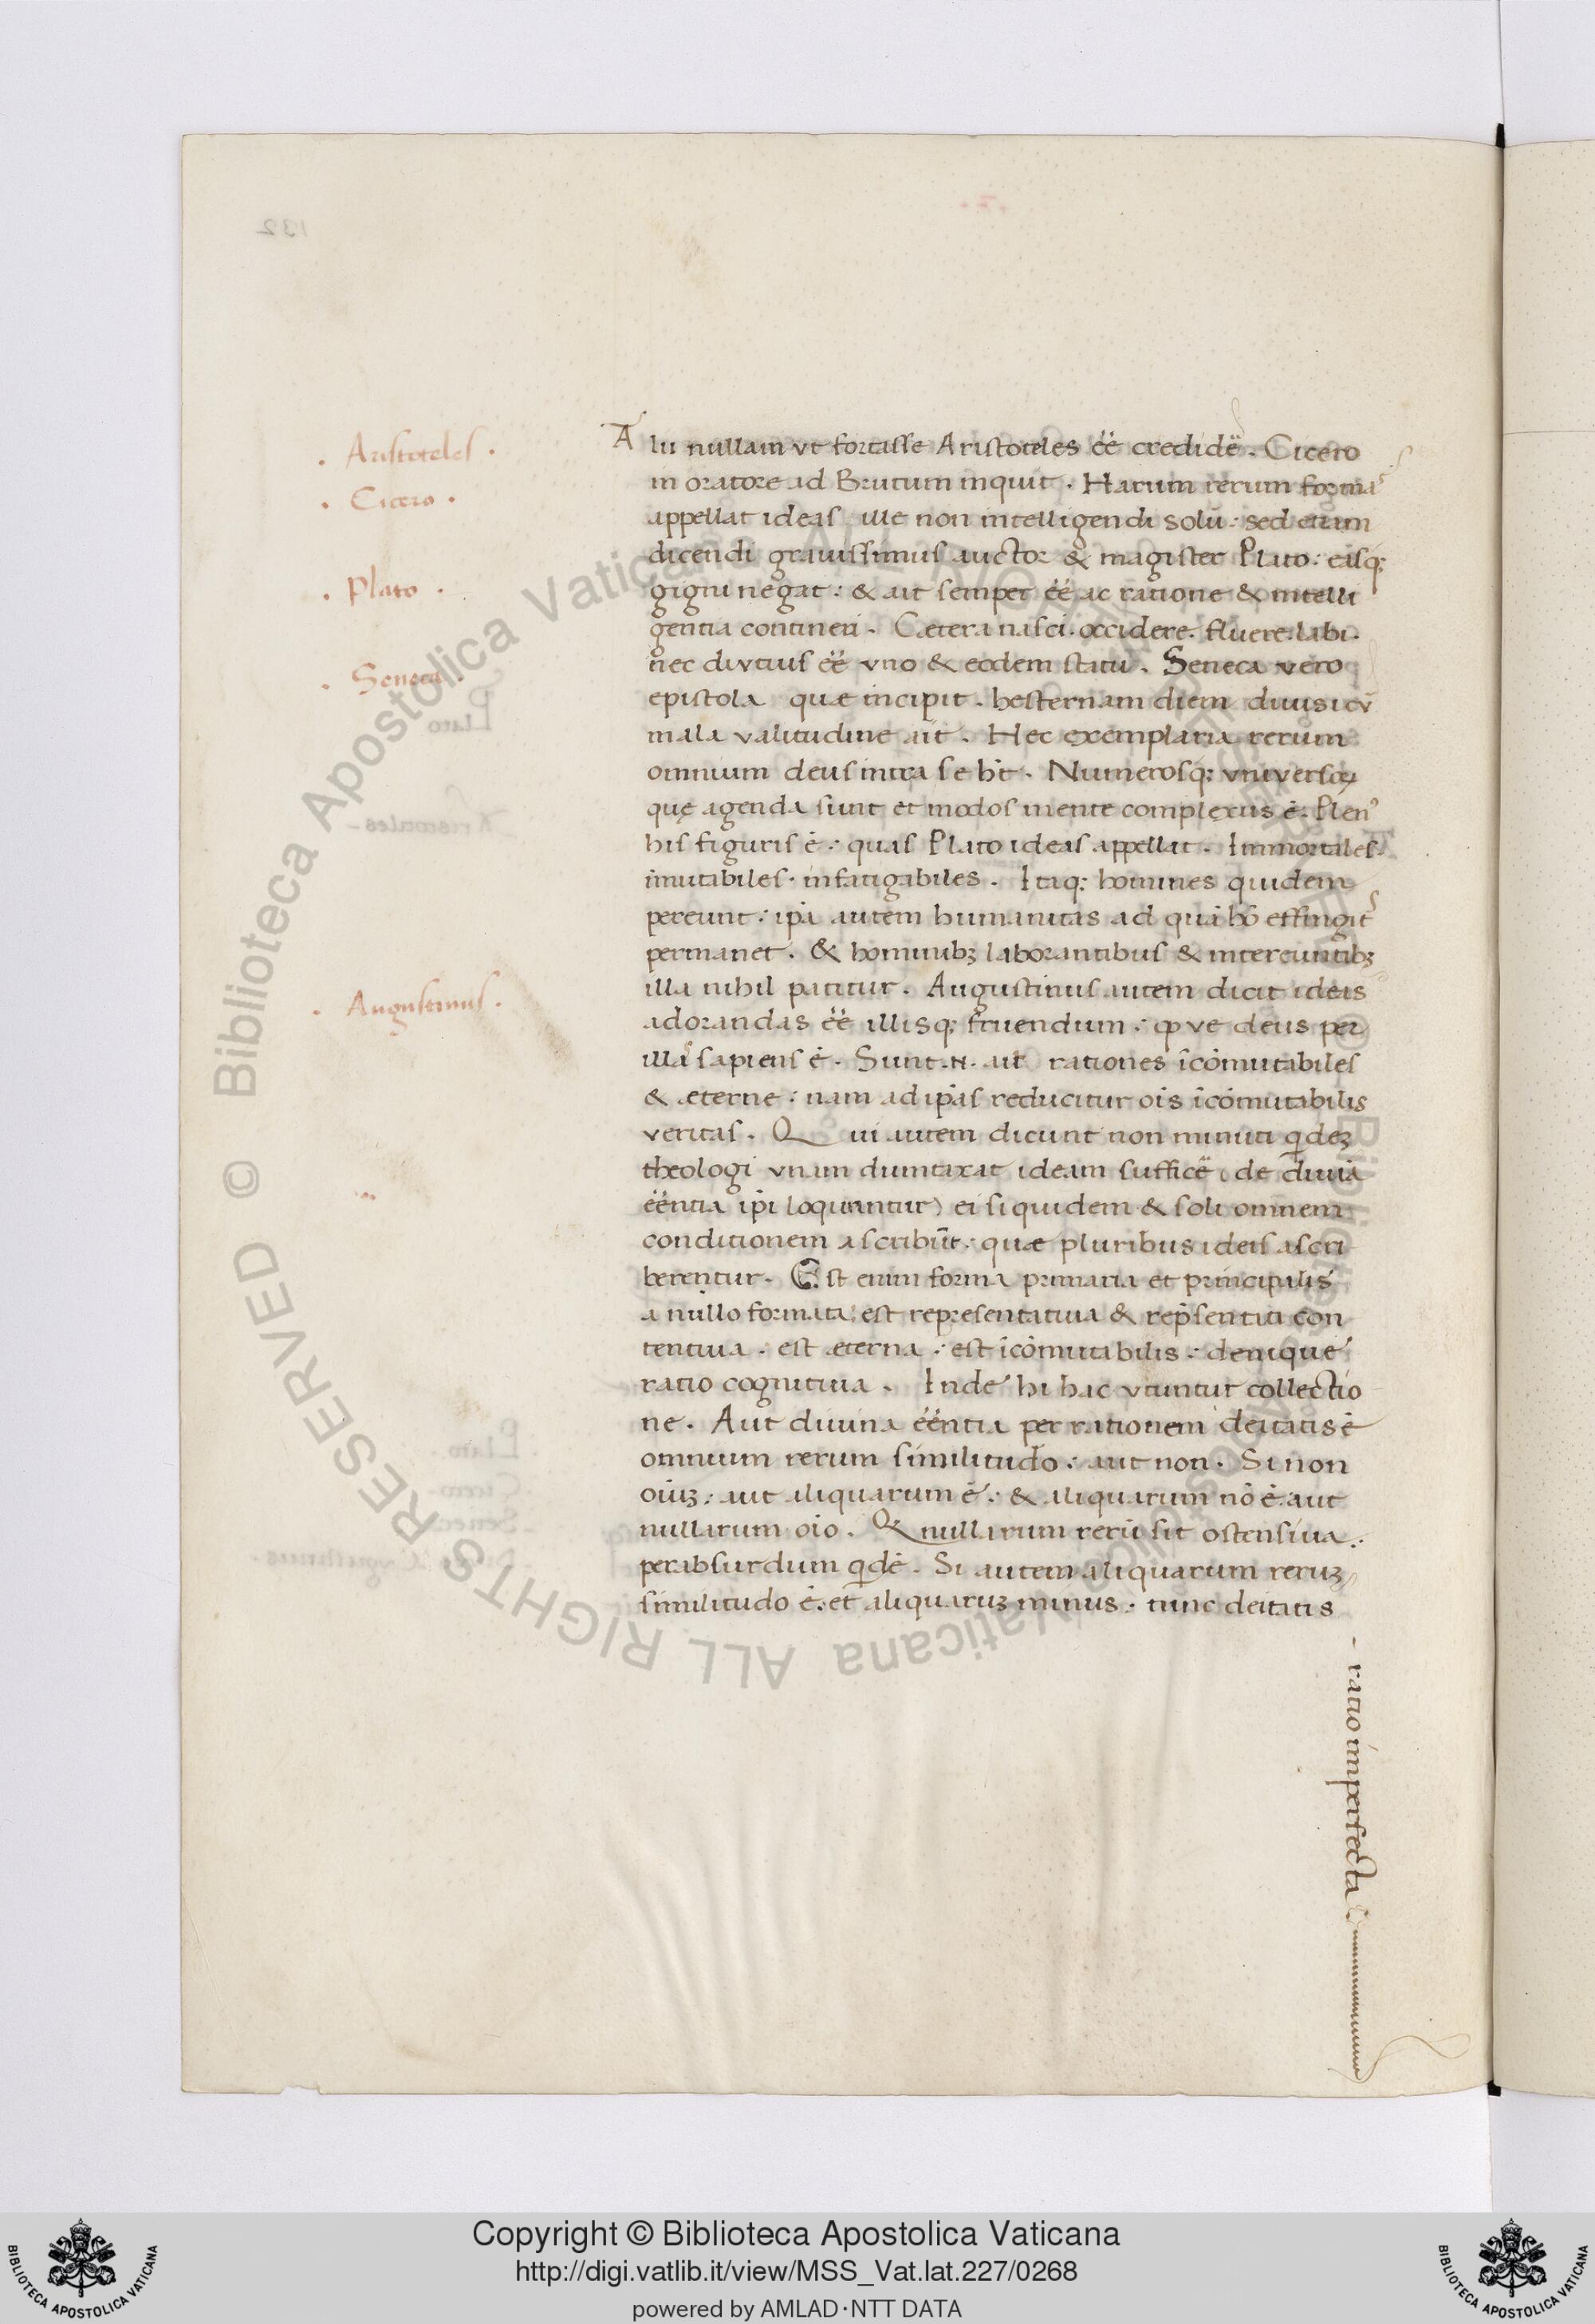 . Aristoteles .
. Cicero .
. Plato .
. Seneca
. Augustinus .
A lii nullam vt fortasse Aristoteles eẽ credidẽ . Cicero
in oratore ad Brutum inquit . Harum rerum formas
appellat ideas ille non intelligendi solũ : sed etiam
dicendi grauissimus auctor & magister Plato : easq;
gigni negat : & ait semper eẽ ac ratione & intelli
gentia contineri . Cætera nasci . occidere . fluere . labi .
nec divtius eẽ vno & eodem statu . Seneca vero
epistola quæ incipit . hesternam diem diuisi cũ
mala valitudine ait . Hec exemplaria rerum
omnium deus intra se ht̃ . Numerosq; vniversoꝝ
quę agenda sunt et modos mente complexus ẽ . Plenꝰ
his figuris ẽ : quas Plato ideas appellat . Immortales .
ĩmutabiles . infatigabiles . Itaq; homines quidem
pereunt : ip̃a autem humanitas ad quã hõ effingit᷑
permanet . & hominibꝫ laborantibus & intereuntibꝫ
illa nihil patitur . Augustinus autem dicit ideas
adorandas eẽ illisq; fruendum : ꝙ ve deus per
illas sapiens ẽ . Sunt .n. ait rationes ĩcõmutabiles
& æterne : nam ad ip̃as reducitur oĩs ĩcõmutabilis
veritas . Qui autem dicunt non minuti qdeꝫ
theologi vnam dumtaxat ideam sufficẽ ( de diuĩa
eẽntia ip̃i loquuntur ) ei siquidem & soli omnem
conditionem ascribũt : quæ pluribus ideis ascri
berentur . Est enim forma primaria et principalis
a nullo formata : est representatiua & rep̃sentati con
tentiua . est æterna : est ĩcõmutabilis : denique
ratio cognitiua . Inde hi hac vtuntur collectio
ne . Aut diuina eẽntia per rationem deitatis ẽ
omnium rerum similitudo : aut non . Si non
oĩuꝫ : aut aliquarum ẽ : & aliquarum nõ ẽ : aut
nullarum oĩo . Qꝫ nullarum rerũ sit ostensiua .
perabsurdum qdẽ . Si autem aliquarum reruꝫ
similitudo ẽ . et aliquaruꝫ minus : tunc deitatis
- ratio imperfecta
Copyright © Biblioteca Apostolica Vaticana
http://digi.vatlib.it/view/MSS_Vat.lat.227/0268
powered by AMLAD·NTT DATA
BIBLIOTECA APOSTOLICA VATICANA
BIBLIOTECA APOSTOLICA VATICANA
© Biblioteca Apostolica Vaticana ALL RIGHTS RESERVED